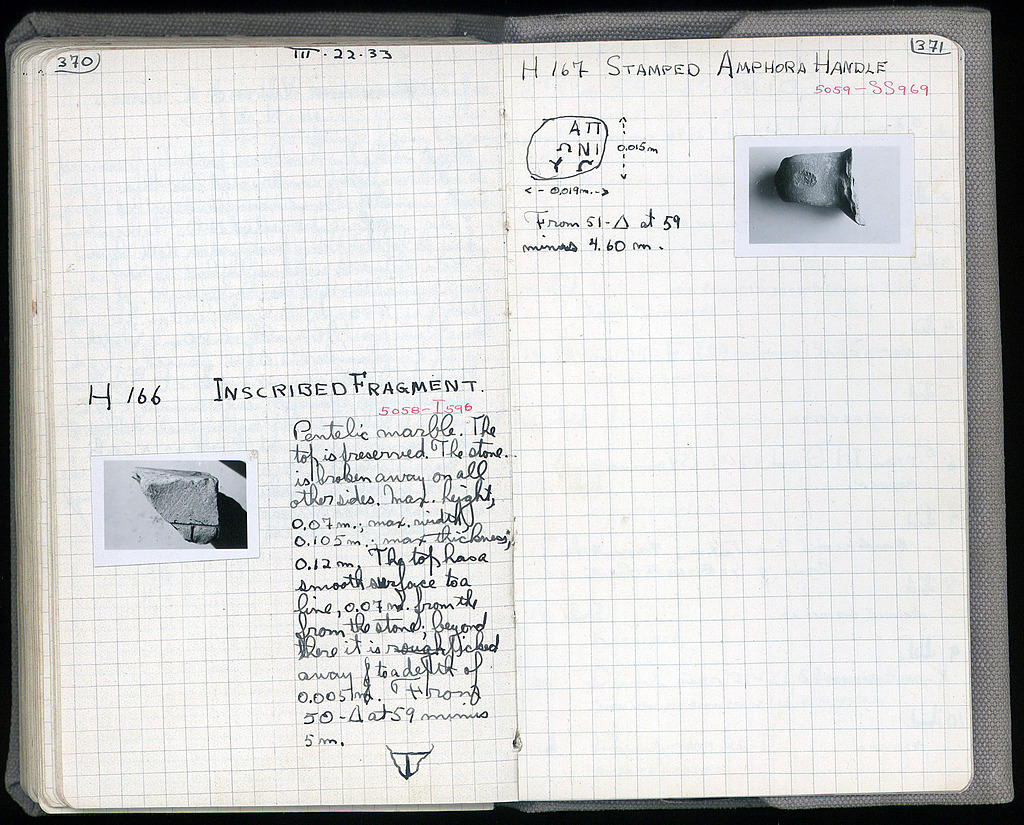 370
III·22·33
H 166 INSCRIBED FRAGMENT.
5058-I596
Pentelic marble. The
top is preserved. The stone
is broken away on all
other sides. Max. height,
0.07 m.; max. width,
0.105 m.; max thickness,
0.12 m. The top has a
smooth surface to a
line, 0.07 m. from the
from the stone; beyond
there it is rough picked
away to a depth of
0.005 m. From
50-Δ at 59 minus
5 m.
371
H 167 STAMPED AMPHORA HANDLE
5059-SS969
ΑΠ
ΩΝΙ
Υ Ω
0.015 m
<- 0.019 m. ->
From 51-Δ at 59
minus 4.60 m.